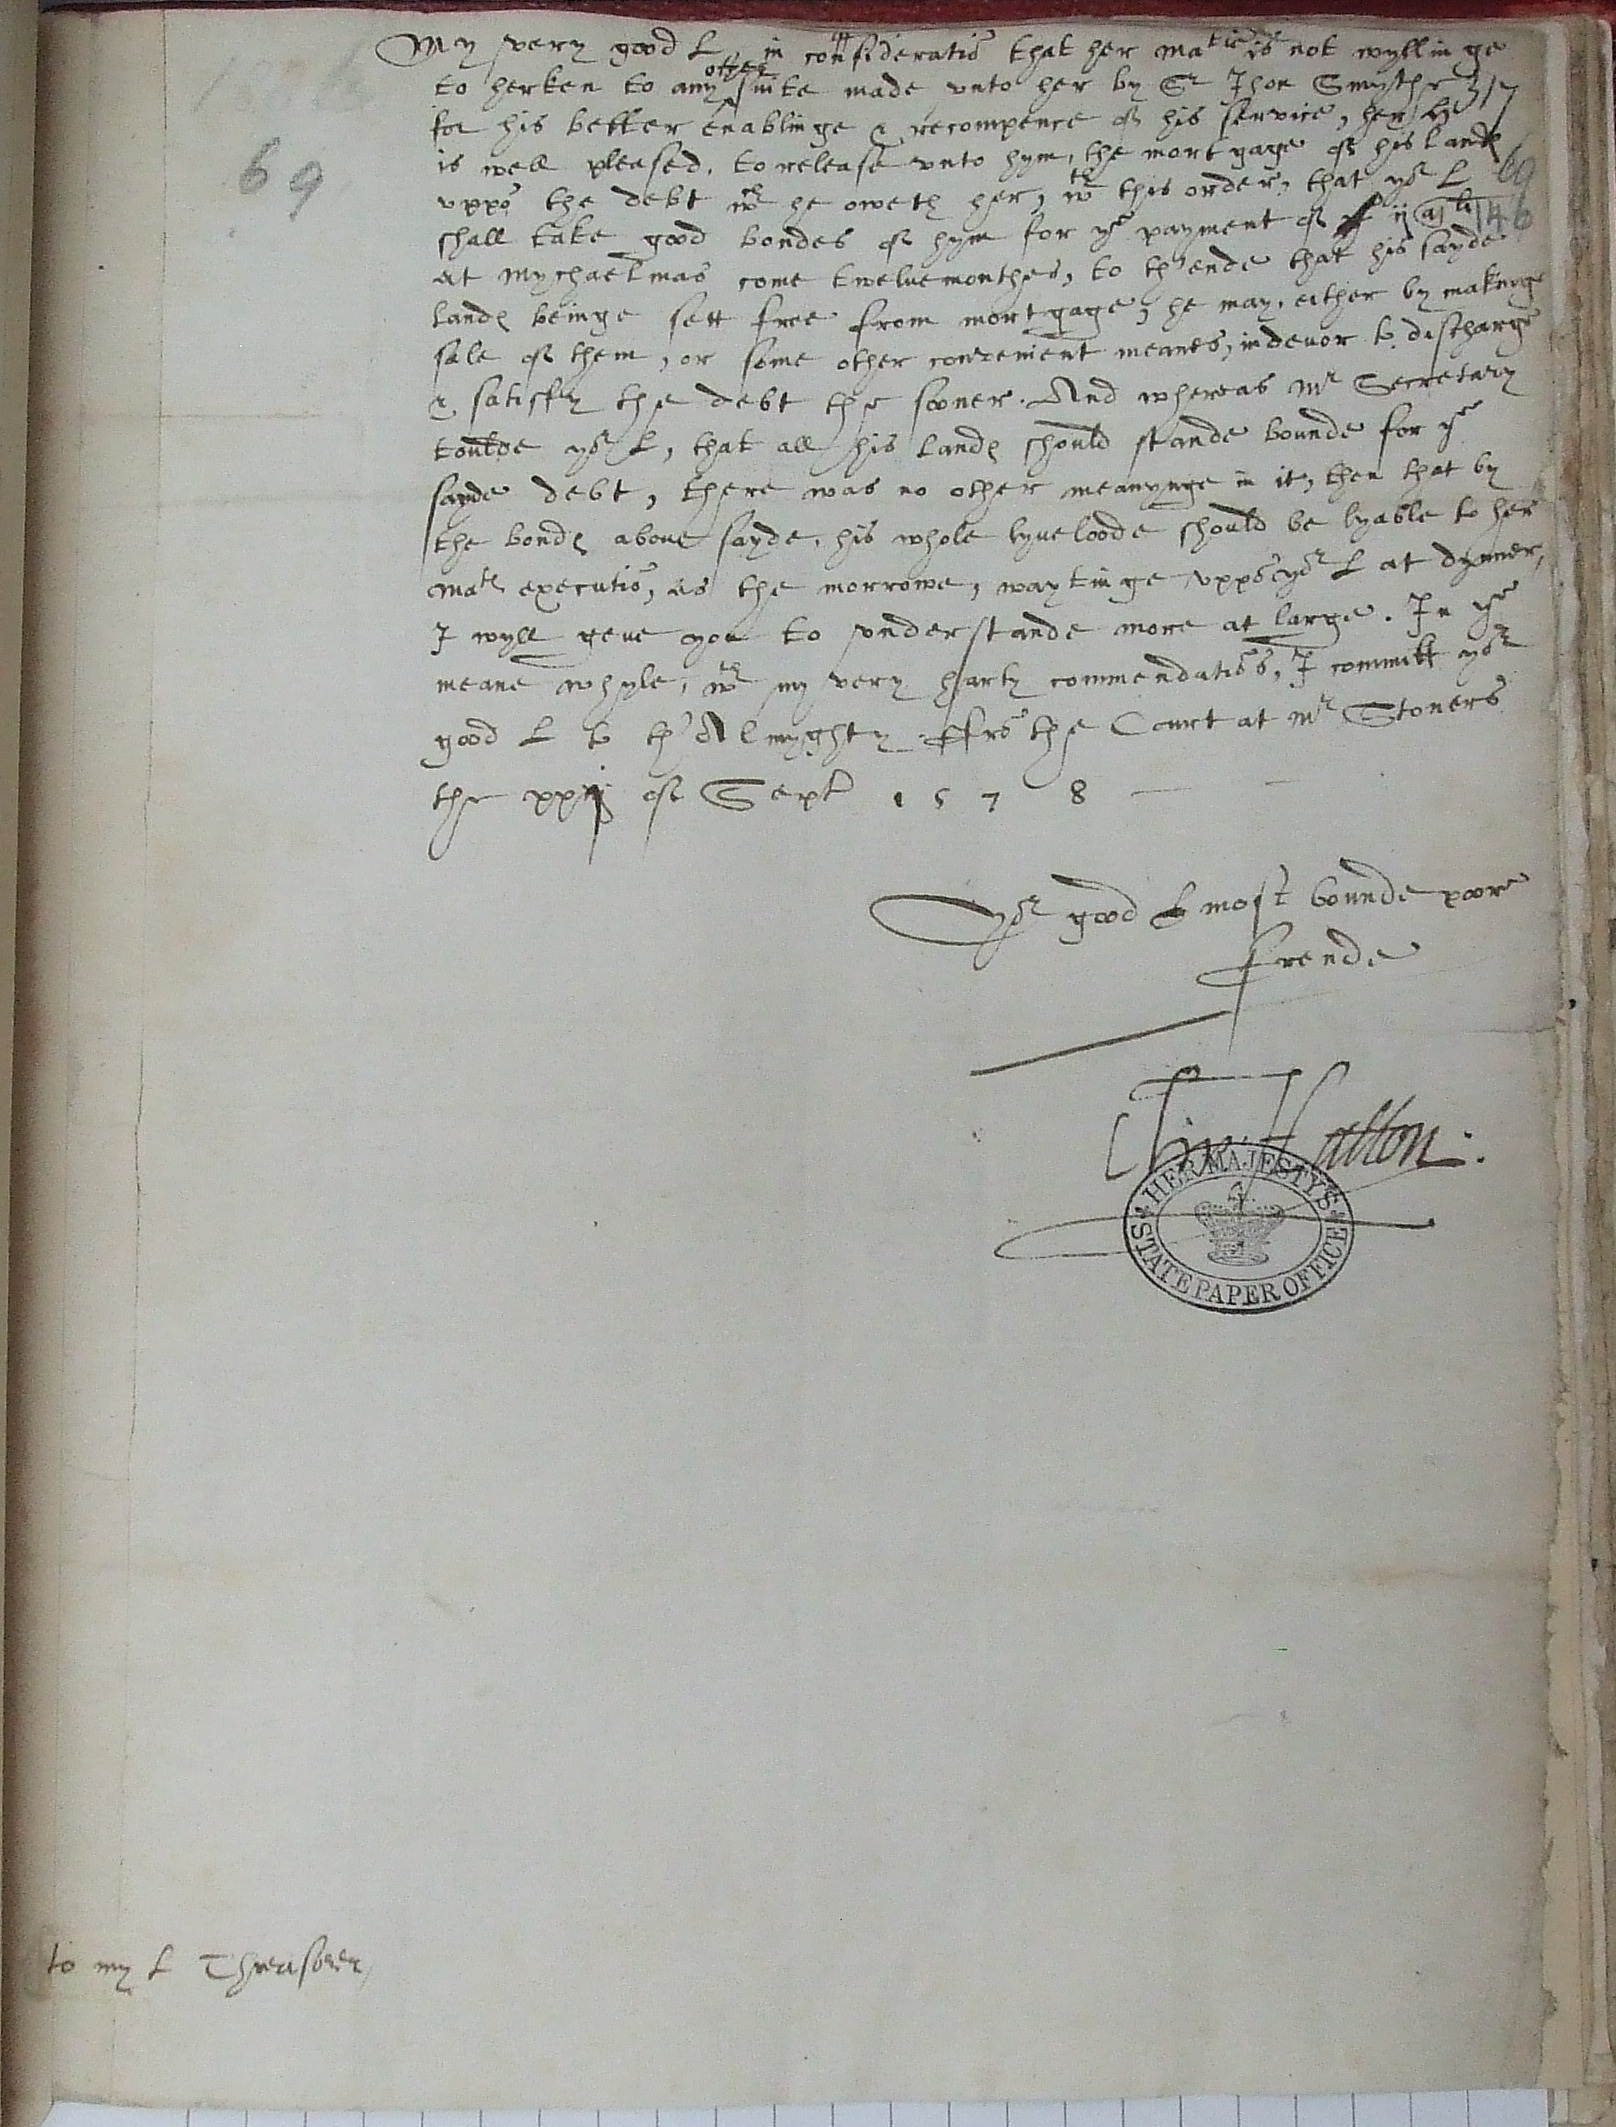 My very good L in consideratiō that her matie is not wyllinge
to herken to any other suite made unto her by Sr Jhon Smythe 317
for his better enablinge & recompence of his service, her H
is well pleased, to release unto hym, the mortgage of his Landes
uppō the debt wch he oweth her, wth this order, that yor L 69
shall take good bondes of hym for ye payment of ijM li 146
At Mychaelmas come twelvemonthes, to th'ende that his sayde
landes beinge sett free from mortgage, he may, either by makinge
sale of them, or some other convenient meanes, indevor to discharge
& satisfy the debt the sooner. And whereas Mr Secretary
toulde yor L, that all his landes should stande bounde for ye
sayde debt, there was no other meanynge in it, then that by
the bondes above sayde, his whole lyveloode should be lyable to her
Mats executiō, As the morrowe, waytinge uppō yor L at dynner,
I wyll geve you to understande more at large. In ye
meane whyle, wth my very harty commendatiōs, I committ yor
good L to th'Almyghty. ffrō the Court at Mr Stoners
the of Septr 1578
Yor good L most bounde poore
frende
Chr. Hatton.
HER MAJESTY'S
STATE PAPER OFFICE
69
to my L Threasorer